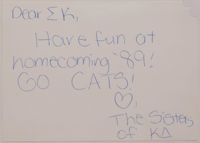 Dear ΣK,
Have fun at
homecoming '89!
GO CATS!
♡,
The Sisters
of KΔ